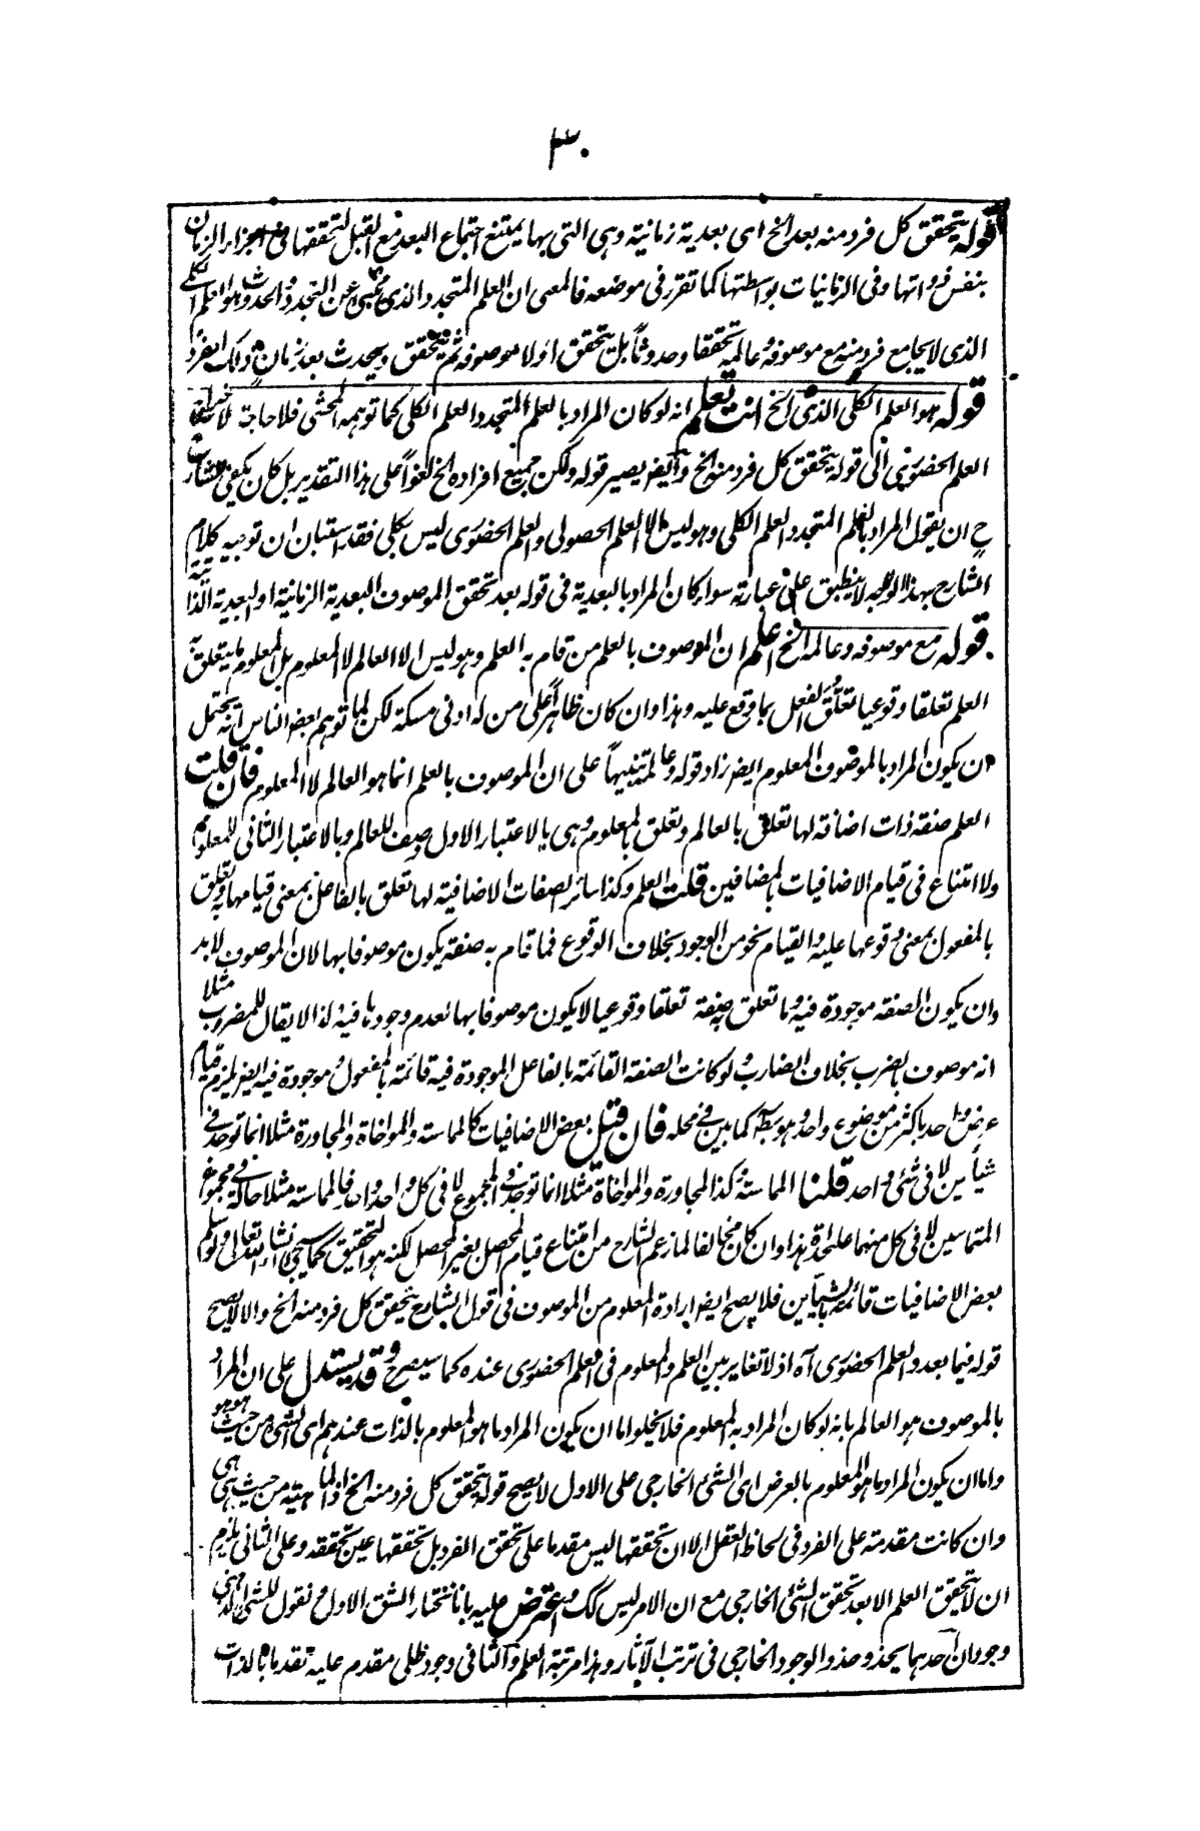 ٣٠
قوله يتحقق كل فرد منه بعد الخ اى بعدية زمانية وهى التى بها يمتنع اجتماع البعد مع القبل لتحققها فى اجزاء الزمان
بنفس ذواتها وفى الزمانيات بواسطتها كما تقرر فى موضعه فالمعى ان العلم المتجدد الذى ينبئ عن التجدد والحدوث هو العلم الكلى
الذى لا يجامع فرد منه مع موصوفه وعالمه تحققا وحدوثاً بل يتحقق اولا موصوفه ثم يتحقق ويحدث بعد زمان ذلك الفرد
قوله هو العلم الكلى الذى الخ انت تعلم انه لو كان المراد بالعلم المتجدد العلم الكلى كما توهمه المحشى فلا حاجة لاخراج
العلم الحضورى الى قوله يتحقق كل فرد منه الخ وايضا يصير قوله ولكن جميع افراده الخ لغواً على هذا التقدير بل كان يكفى للشارح
ح ان يقول المراد بالعلم المتجدد العلم الكلى وهو ليس الا العلم الحصولى والعلم الحضورى ليس بكلى فقد استبان ان توجيه كلام
الشارح بهذا الوجه لا ينطبق على عبارته سواء كان المراد بالبعدية فى قوله بعد تحقق الموصوف البعدية الزمانية او البعدية الذاتية
قوله مع موصوفه وعالمه الخ اعلم ان الموصوف بالعلم من قام به العلم وهو ليس الا العالم لا المعلوم بل المعلوم ما يتعلق به
العلم تعلقا وقوعيا تعلق الفعل بما وقع عليه وهذا وان كان ظاهراً على من له ادنى مسكة لكن لما توهم بعض الناس انه يحتمل
ان يكون المراد بالموصوف المعلوم ايضا زاد قوله وعالمه تنبيهاً على ان الموصوف بالعلم انما هو العالم لا المعلوم فان قلت
العلم صفة ذات اضافة لها تعلق بالعالم وتعلق بالمعلوم وهى بالاعتبار الاول وصف للعالم وبالاعتبار الثانى للمعلوم
ولا امتناع فى قيام الاضافيات بالمضافين قلت العلم وكذا سائر الصفات الاضافية لها تعلق بالفاعل بمعنى قيامها به وتعلق
بالمفعول بمعنى وقوعها عليه والقيام نحو من الوجود بخلاف الوقوع فما قام به صفة يكون موصوفا بها لان الموصوف لابد
وان يكون الصفة موجودة فيه وما تعلق به صفة تعلقا وقوعيا لا يكون موصوفا بها لعدم وجودها فيه لذا لا يقال للمضروب مثلا
انه موصوف بالضرب بخلاف الضارب ولو كانت الصفة القائمة بالفاعل الموجودة فيه قائمة بالمفعول وموجودة فيه ايضا لزم قيام
عرض واحد باكثر من موضوع واحد وهو بط كما بين فى محله فان قيل بعض الاضافيات كالمماسة والمواخاة والمجاورة مثلا انما توجد فى
شيأين لا فى شئ واحد قلنا المماسة وكذا المجاورة والمواخاة مثلا انما توجد فى المجموع لا فى كل واحد واحد فالمماسة مثلا حالة فى مجموع
المتماسين لا فى كل منهما علىٰحدة هذا وان كان مخالفا لما زعم الشارح من امتناع قيام المحصل بغير المحصل لكنه هو التحقيق كما سيجئ انشاء الله تعالى ولو سلم
بعض الاضافيات قائمة بالشيأين فلا يصح ايضا ارادة المعلوم من الموصوف فى قول الشارح يتحقق كل فرد منه الخ والا لا يصح
قوله فيما بعد والعلم الحضورى آه اذ لا تغاير بين العلم والمعلوم فى العلم الحضورى عنده كما سيصرح وقد يستدل على ان المراد
بالموصوف هو العالم بانه لو كان المراد به المعلوم فلا يخلو اما ان يكون المراد ما هو المعلوم بالذات عندهم اى الشئ من حيث هو هو
واما ان يكون المراد ما هو المعلوم بالعرض اى الشئ الخارجى على الاول لا يصح قوله يتحقق كل فرد منه الخ اذ الماهية من حيث هى هى
وان كانت مقدمة على الفرد فى لحاظ العقل الا ان تحققها ليس مقدما على تحقق الفرد بل تحققها عين تحققه وعلى الثانى يلزم
ان لا يتحقق العلم الا بعد تحقق الشئ الخارجى مع ان الامر ليس كك واعترض عليه بانا نختار الشق الاول ونقول للشئ الذهنى
وجودان احدهما يحذو حذو الوجود الخارجى فى ترتب الآثار وهذا مرتبة العلم والثانى وجود ظلى مقدم عليه تقدما بالذات